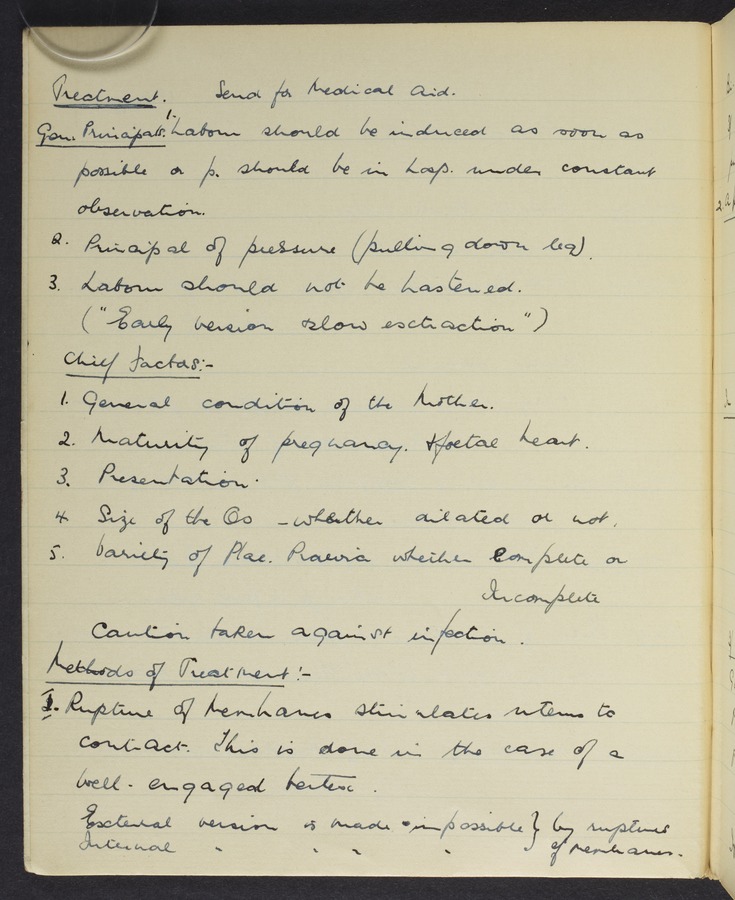 Treatment. Send for Medical Aid.
Gen. Principals. 1. Labour should be induced as soon as
possible or p. should be in hosp. under constant
observation.
2. Principal of pressure (pulling down leg).
3. Labour should not be hastened.
("Early version slow extraction")
Chief factors:-
1. General condition of the Mother.
2. Maturity of pregnancy. & foetal heart.
3. Presentation.
4 Size of the Os - whether dilated or not.
5. Variety of Plac. Praevia whether Complete or
Incomplete
Caution taken against infection.
Methods of Treatment:-
1. Rupture of Membranes stimulates uterus to
contract. This is done in the case of a
well-engaged vertex.
External version is made impossible } by rupture
Internal " " " " } of membranes.